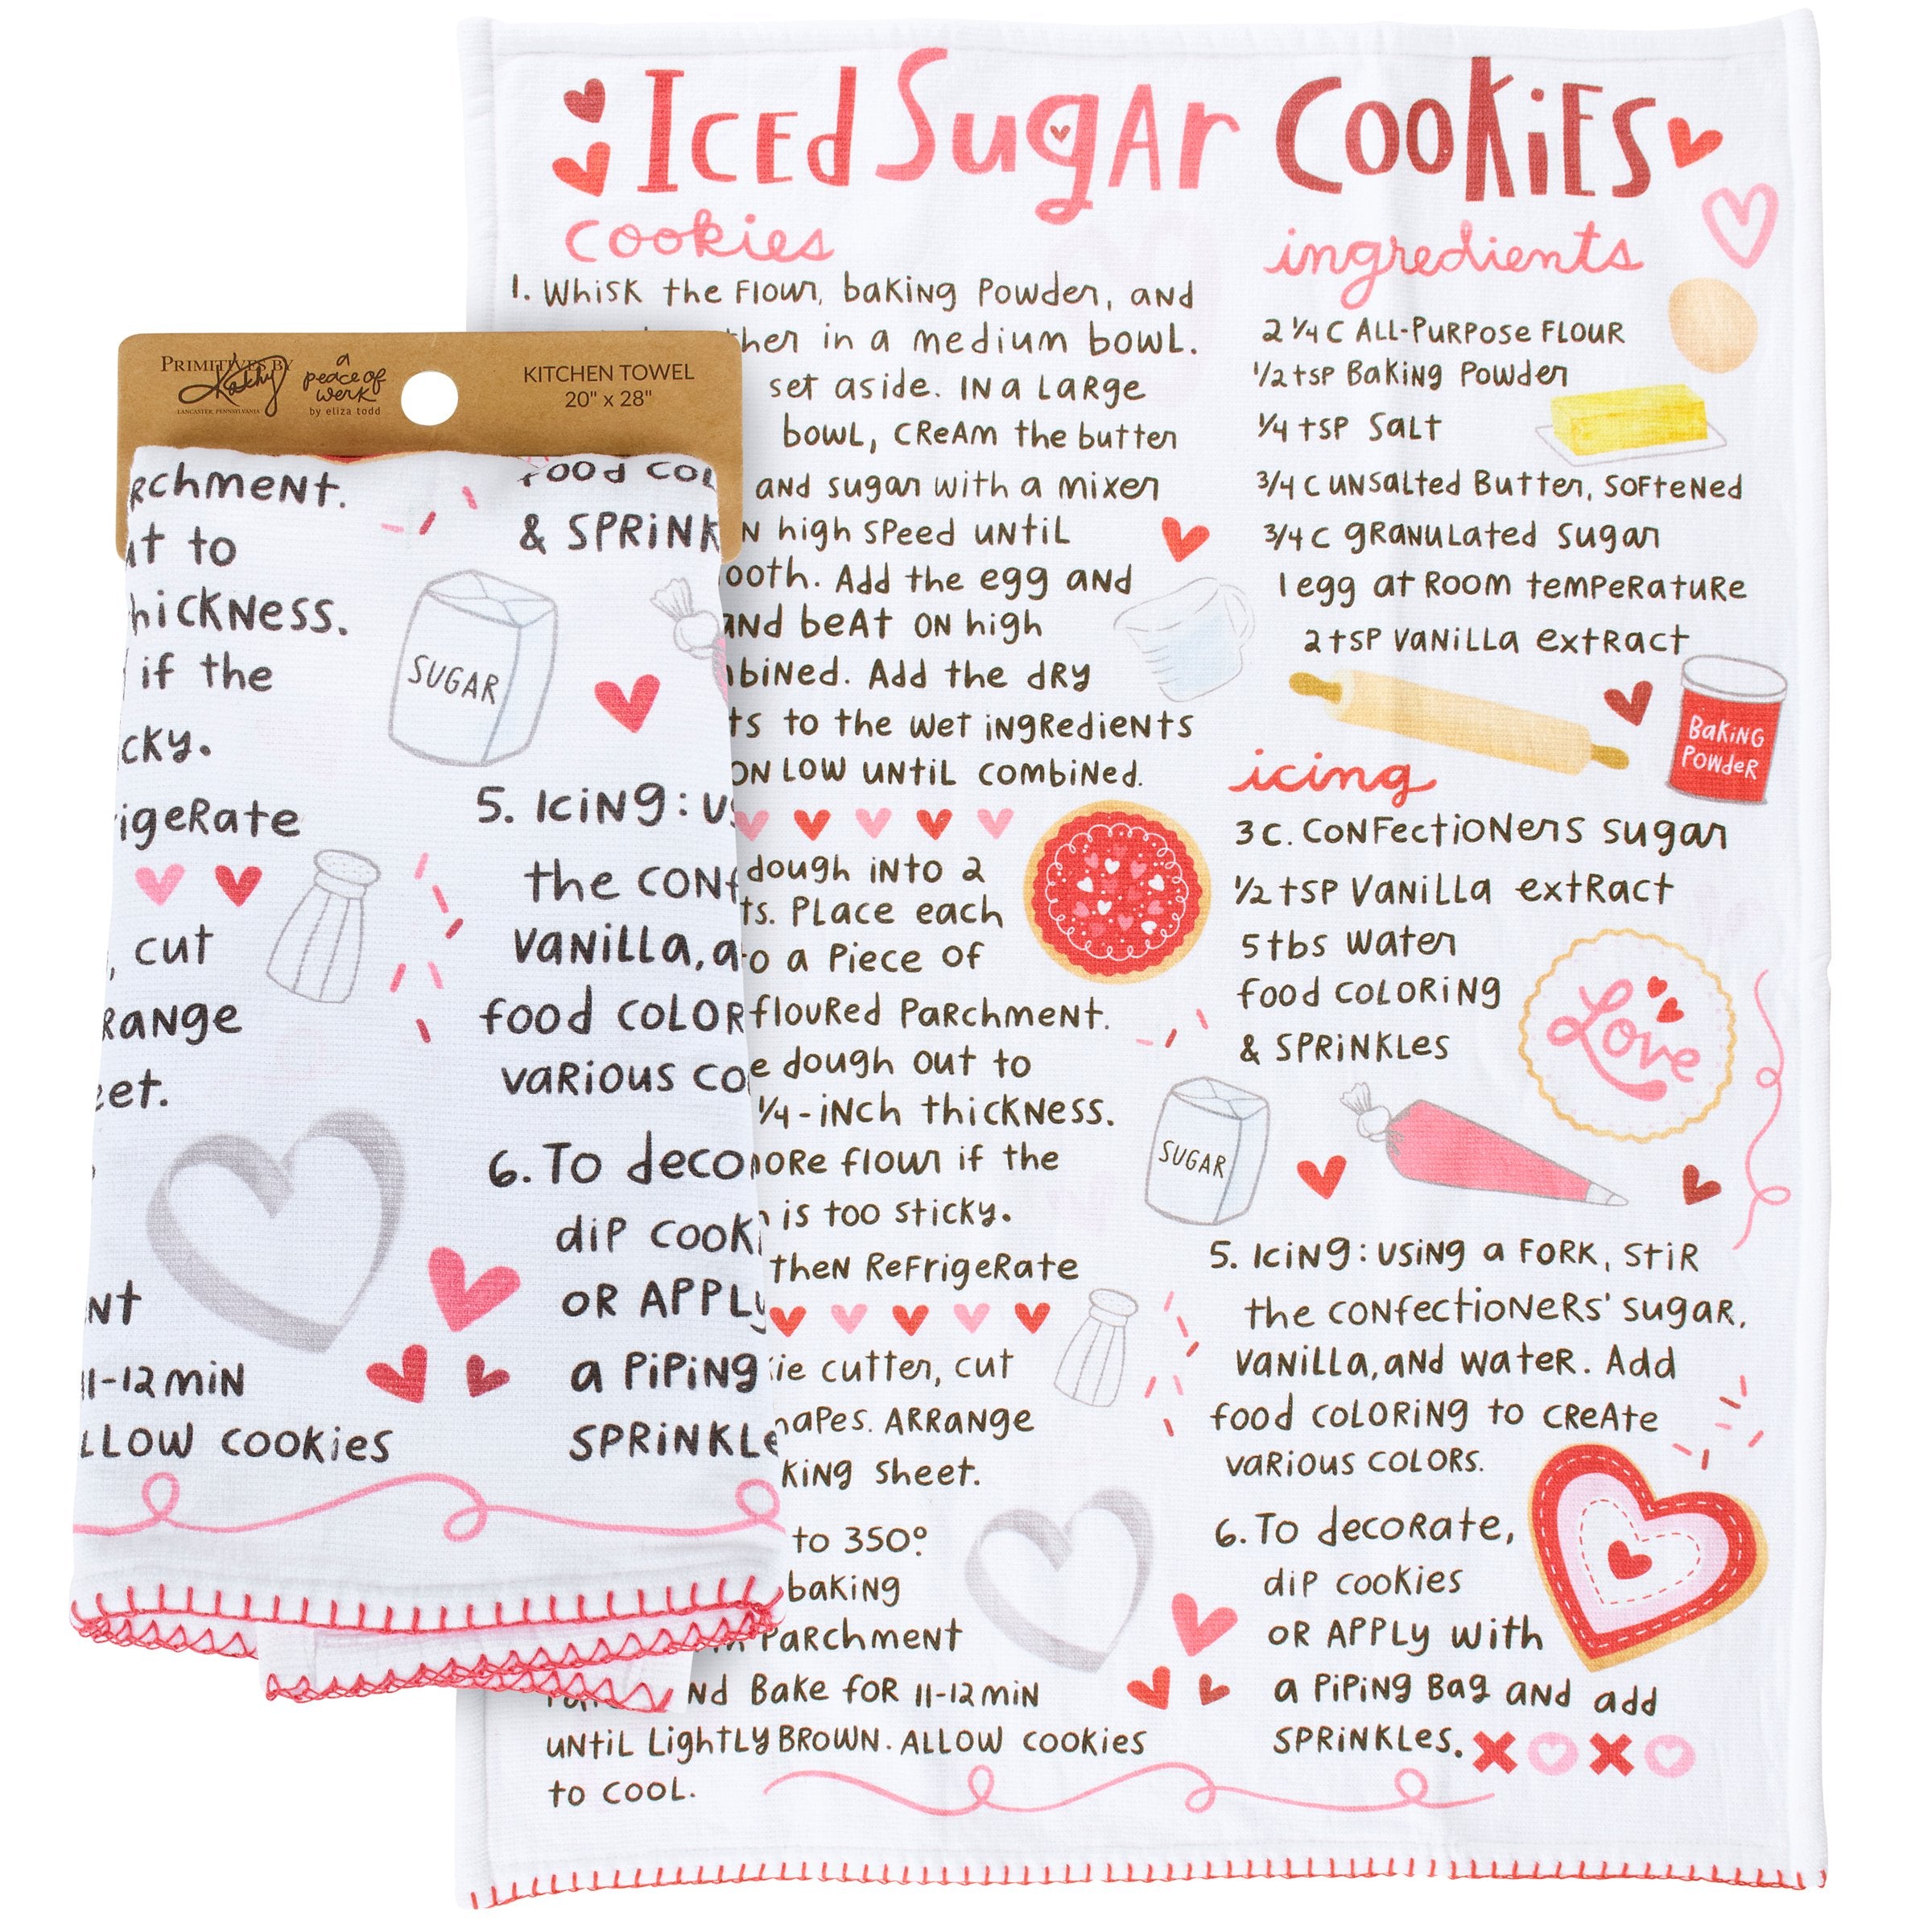 Iced Sugar Cookies
cookies
1. Whisk the flour, baking powder, and
in a medium bowl.
set aside. In a large
bowl, cream the butter
and sugar with a mixer
high speed until
Add the egg and
and beat on high
Add the dry
to the wet ingredients
on low until combined.
dough into 2
Place each
a piece of
floured parchment.
dough out to
1/4-inch thickness.
flour if the
is too sticky.
then refrigerate
cutter, cut
Arrange
sheet.
to 350°
baking
parchment
Bake for 11-12 min
until lightly brown. Allow cookies
to cool.
ingredients
2 1/4 c all-purpose flour
1/2 tsp baking powder
1/4 tsp salt
3/4 c unsalted butter, softened
3/4 c granulated sugar
1 egg at room temperature
2 tsp vanilla extract
Baking
Powder
icing
3 c. confectioners sugar
1/2 tsp vanilla extract
5 tbs water
food coloring
& sprinkles
Love
SUGAR
5. Icing: using a fork, stir
the confectioners' sugar,
vanilla, and water. Add
food coloring to create
various colors.
6. To decorate,
dip cookies
or apply with
a piping bag and add
sprinkles.
PRIMITIVES BY
Kathy
LANCASTER, PENNSYLVANIA
a
peace of
werk
by eliza todd
KITCHEN TOWEL
20" x 28"
food
& 
to
if the
SUGAR
5. Icing:
the
cut
vanilla,
food
various
6. To
dip
or
11-12 min
a piping
cookies